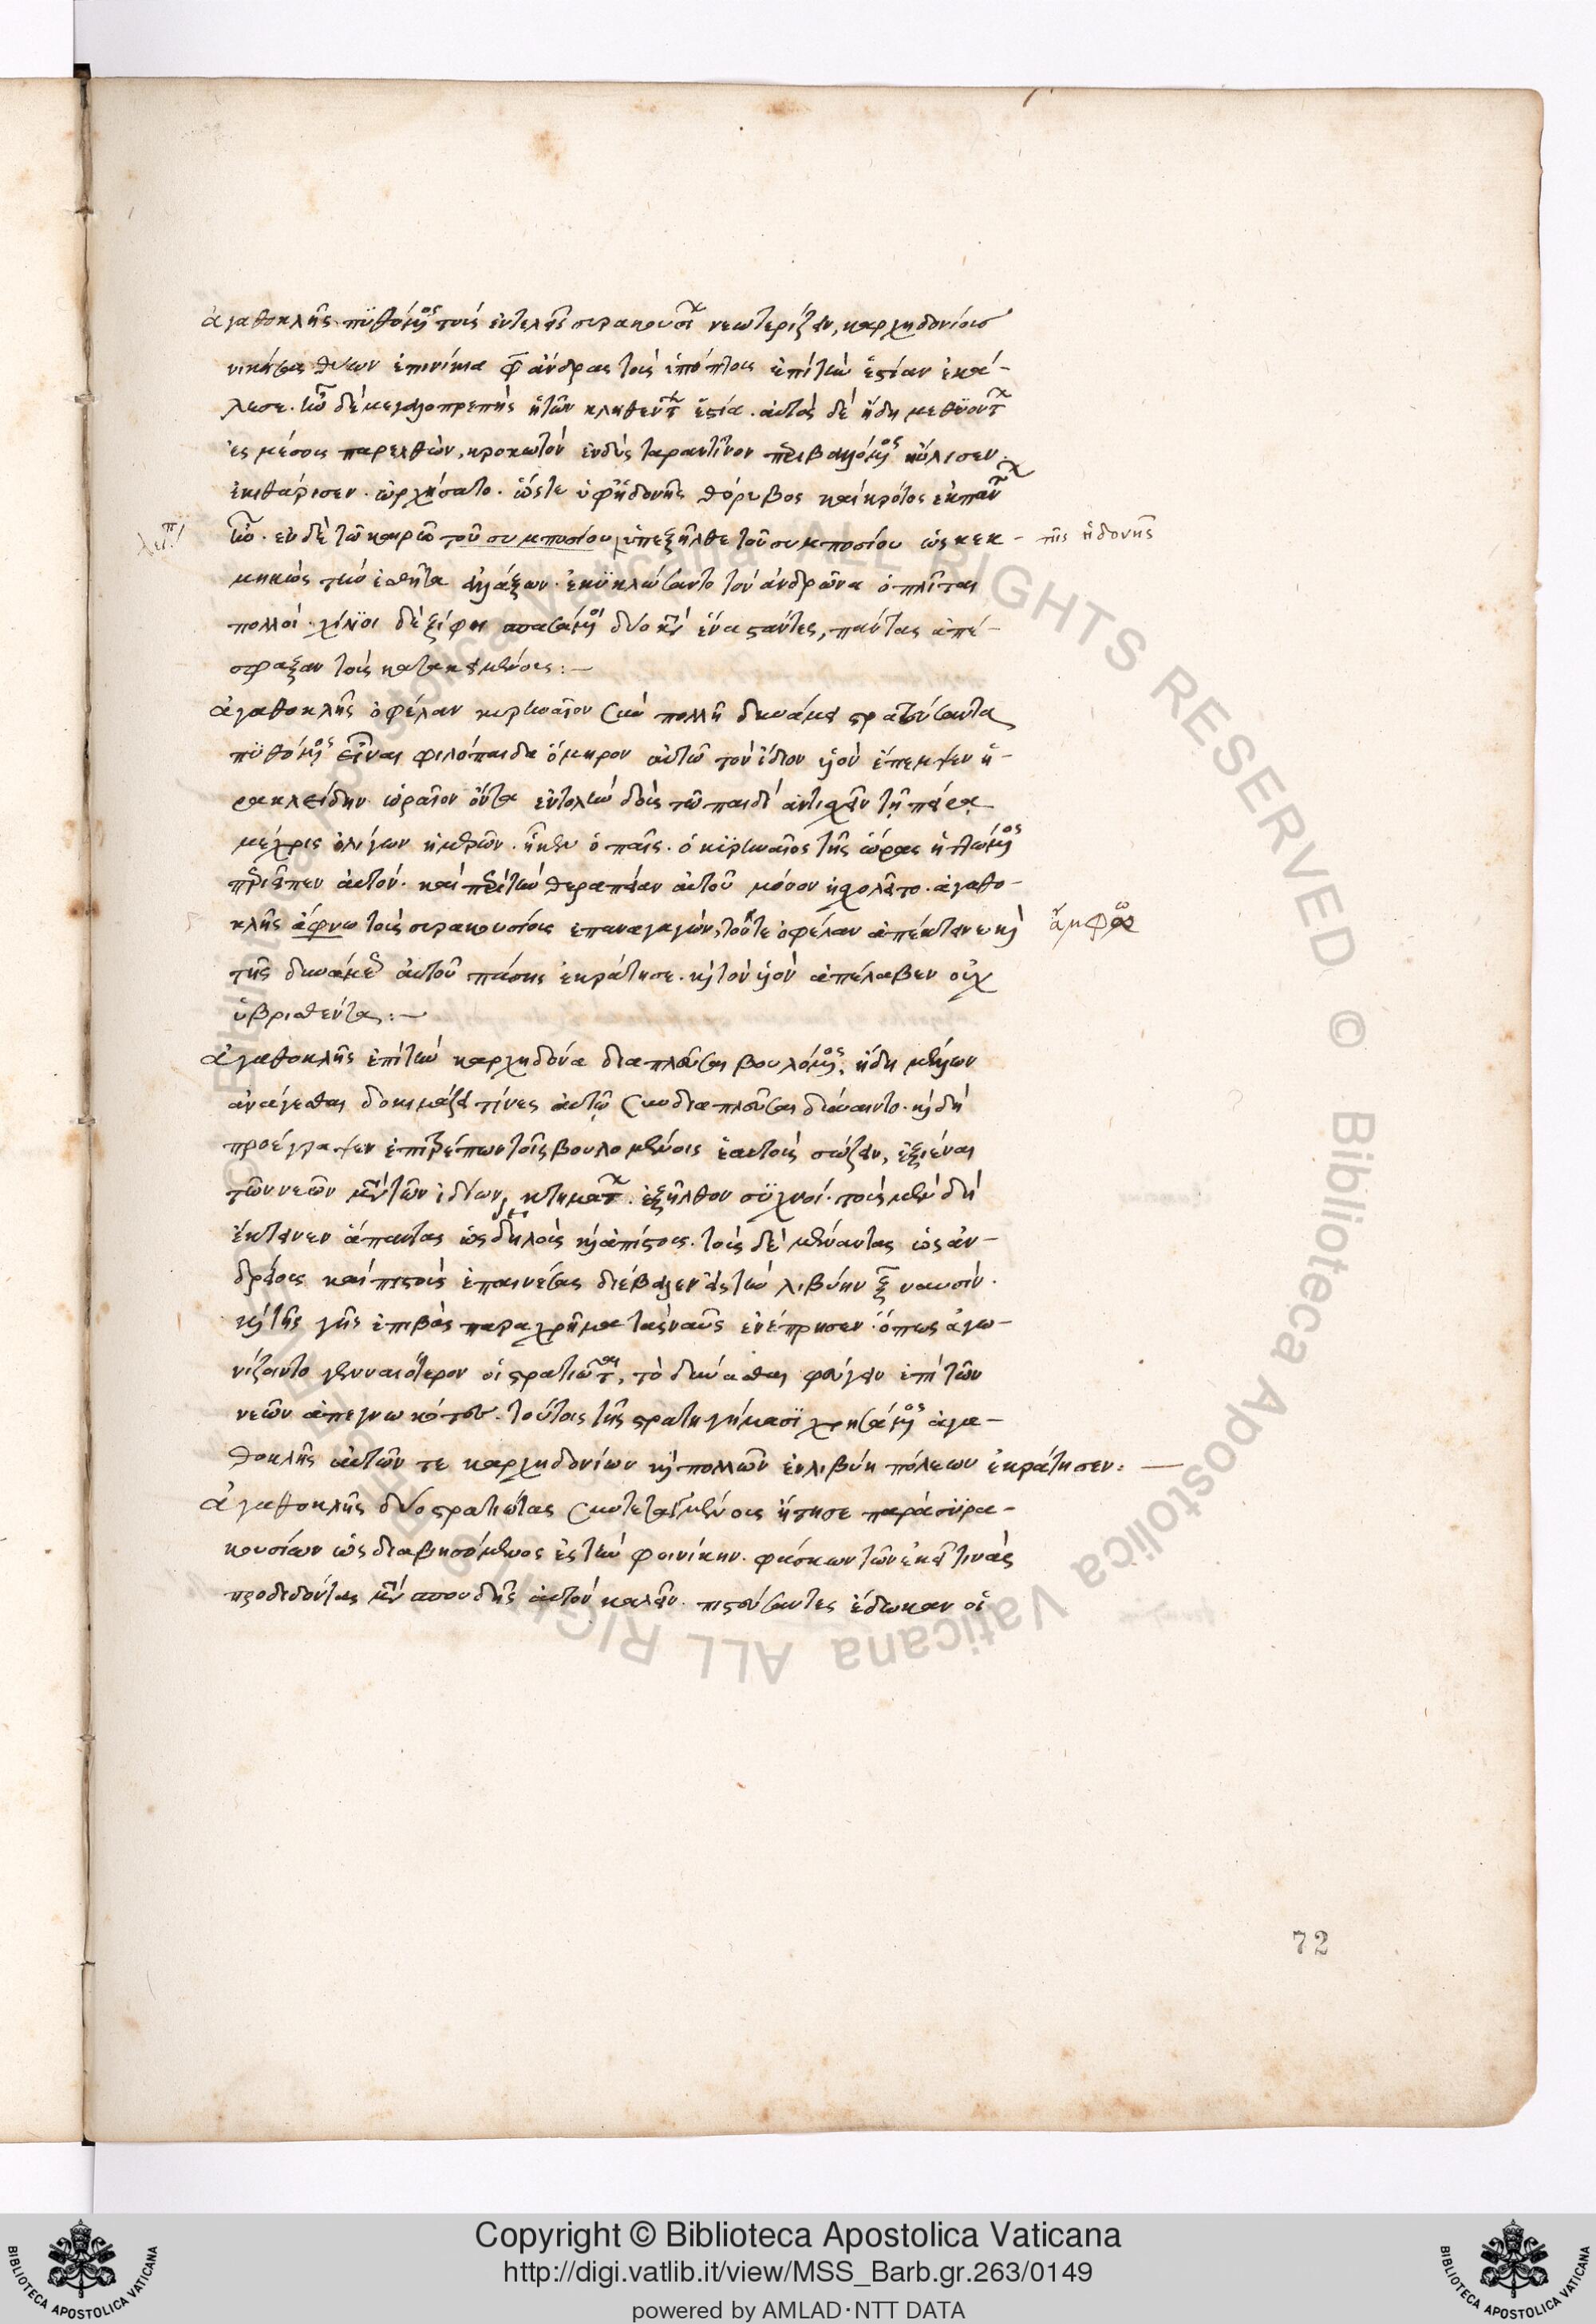 ἀγαθοκλῆς πυθόμενος τοὺς ἐν τέλει συρακουσίων νεωτερίζειν, καρχηδονίους
νικήσας θύων ἐπινίκια φ̄ ἄνδρας τοὺς ὑπόπτους ἐπὶ τὴν ἑστίαν ἐκά-
λεσε. ἦν δὲ μεγαλοπρεπὴς ἡ τῶν κληθέντων ἑστία. αὐτὸς δὲ ἤδη μεθυόντων
ἐς μέσους παρελθὼν, κροκωτὸν ἐνδὺς ταραντῖνον περιβαλόμενος ηὔλισεν.
ἐκιθάρισεν. ὠρχήσατο. ὥστε ὑφ' ἡδονῆς θόρυβος καὶ κρότος ἐκ παντων
ἦν. ἐν δὲ τῶ καιρῶ τοῦ συμποσίου ὑπεξῆλθε τοῦ συμποσίου ὡς κεκ-
τῆς ἡδονῆς
μηκὼς τὴν ἐσθῆτα ἀλάξων. ἐκυκλώσαντο τὸν ἀνδρῶνα ὁπλῖται
πολλοὶ. χίλιοι δὲ ξίφη σπασάμενοι δύο καθ' ἕνα στάντες, πάντας ἀπέ-
σφαξαν τοὺς κατακειμένους:—
ἀγαθοκλῆς ὀφέλαν κυρηναῖον σὺν πολλῆ δυνάμει στρατεύσαντα
πυθόμενος εἶναι φιλόπαιδα ὅμηρον αὐτῶ τὸν ἴδιον υἱὸν ἔπεμψεν ἡ-
ρακλείδην ὡραῖον ὄντα ἐντολὴν δοὺς τῶ παιδὶ ἀντισχεῖν τῇ πείρᾳ
μέχρις ὀλίγων ἡμερῶν. ἧκεν ὁ παῖς. ὁ κυρηναῖος τῆς ὥρας ἡττώμενος
περιεῖπεν αὐτόν. καὶ περὶ τὴν θεραπείαν αὐτοῦ μόνον ἠσχολεῖτο. ἀγαθο-
κλῆς ἄφνω τοὺς συρακουσίους ἐπαναγαγὼν, τόν τε ὀφέλαν ἀπέκτεινε καὶ
τῆς δυνάμεως αὐτοῦ πάσης ἐκράτησε. καὶ τὸν υἱὸν ἀπέλαβεν οὐχ
ὑβρισθέντα:—
ἀγαθοκλῆς ἐπὶ τὴν καρχηδόνα διαπλεῦσαι βουλόμενος, ἤδη μέλλων
ἀνάγεσθαι δοκιμάζει τίνες αὐτῷ συνδιαπλεῦσαι δύναιντο. καὶ δὴ
προέγραψεν ἐπιτρέπων τοῖς βουλομένοις ἑαυτοὺς σώζειν, ἐξιέναι
τῶν νεῶν μετὰ τῶν ἰδίων κτημάτων. ἐξῆλθον συχνοί. τοὺς μὲν δὴ
ἔκτεινεν ἅπαντας ὡς δειλοὺς καὶ ἀπίστους. τοὺς δὲ μείναντας ὡς ἀν-
δρείους καὶ πιστοὺς ἐπαινέσας διέβαλεν εἰς τὴν λιβύην ξ̄ ναυσὶν.
καὶ τῆς γῆς ἐπιβὰς παραχρῆμα τὰς ναῦς ἐνέπρησεν. ὅπως ἀγω-
νίζοιντο γενναιότερον οἱ στρατιῶται, τὸ δύνασθαι φεύγειν ἐπὶ τῶν
νεῶν ἀπεγνωκότες. τούτοις τοῖς στρατηγήμασι χρησάμενος ἀγα-
θοκλῆς αὐτῶν τε καρχηδονίων καὶ πολλῶν ἐν λιβύη πόλεων ἐκράτησεν:—
ἀγαθοκλῆς δύο στρατιώτας συντεταγμένους ἤτησε παρὰ συρα-
κουσίων ὡς διαβησόμενος ἐς τὴν φοινίκην. φάσκων τῶν ἐκεῖ τινὰς
προδιδόντας μετὰ σπουδῆς αὐτὸν καλεῖν. πιστεύσαντες ἔδωκαν οἱ
72
Copyright © Biblioteca Apostolica Vaticana
http://digi.vatlib.it/view/MSS_Barb.gr.263/0149
powered by AMLAD·NTT DATA